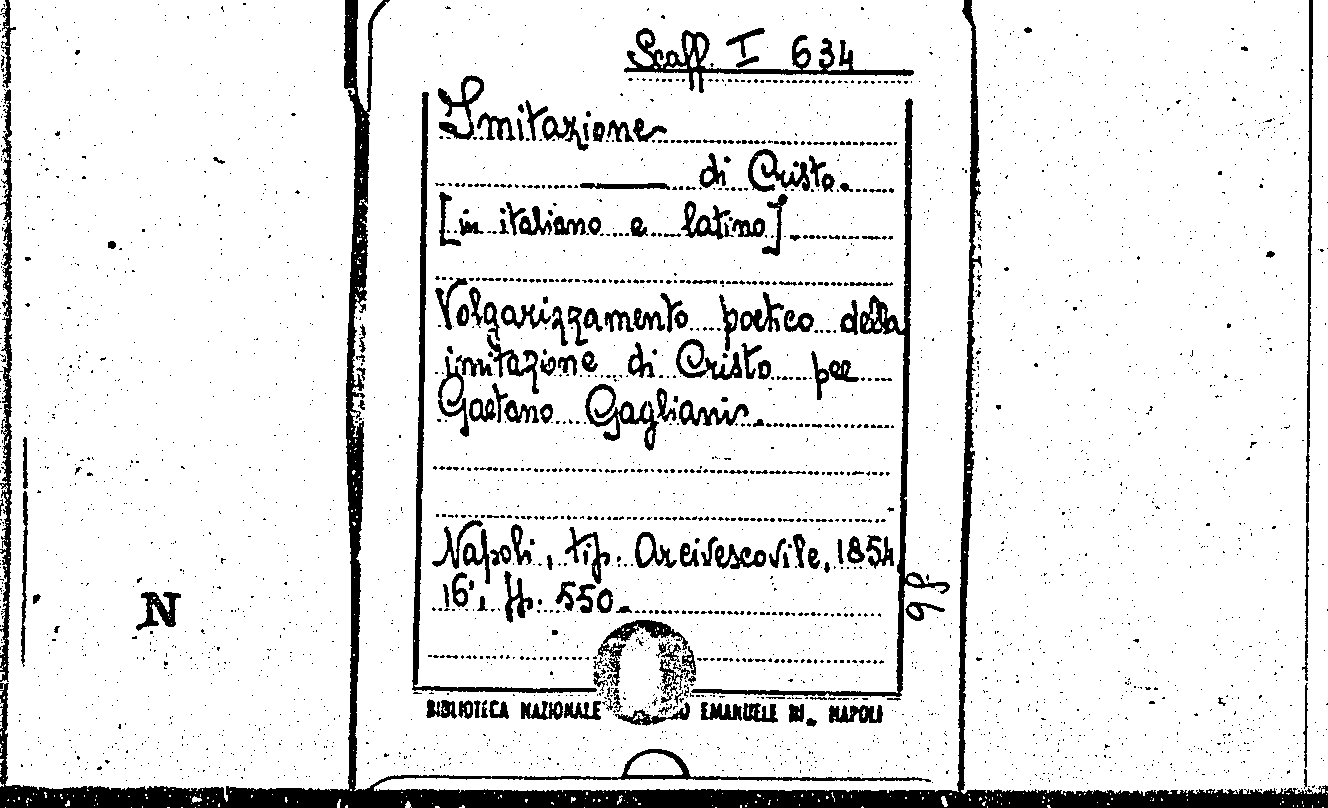 Scaff. I 634
Imitazione
di Cristo.
[in italiano e latino].
Volgarizzamento poetico della
imitazione di Cristo per
Gaetano Gagliani.
Napoli, tip. Arcivescovile, 1854,
16°, pp. 550.
98
N
BIBLIOTECA NAZIONALE EMANUELE III. NAPOLI